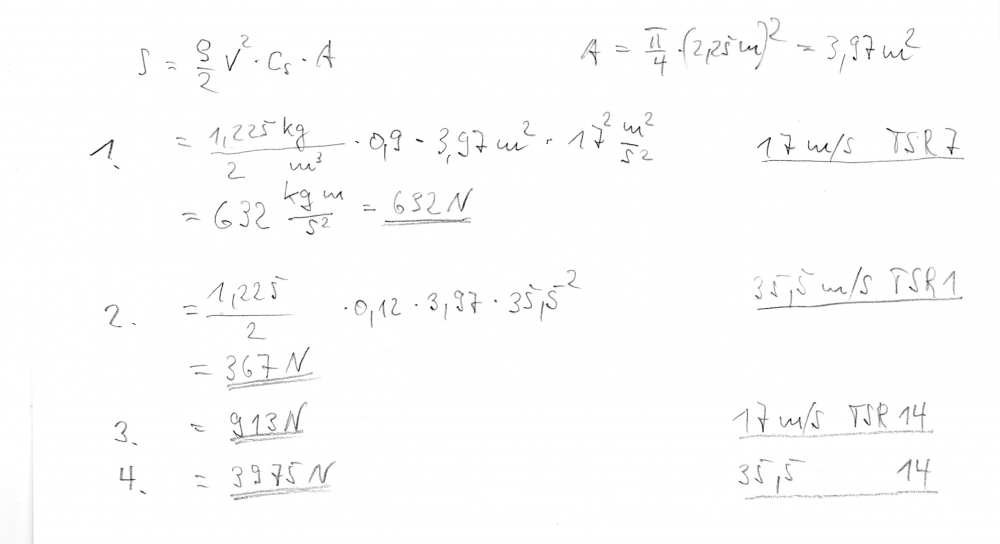 S = ρ/2 v² · Cs · A    A = π/4 · (2,25m)² = 3,97m²
1. = 1,225 kg / 2 m³ · 0,9 · 3,97m² · 17² m²/s²    17 m/s TSR 7
= 632 kg m/s² = 632 N
2. = 1,225/2 · 0,12 · 3,97 · 35,5²    35,5 m/s TSR 1
= 367 N
3. = 913 N    17 m/s TSR 14
4. = 3975 N    35,5 14